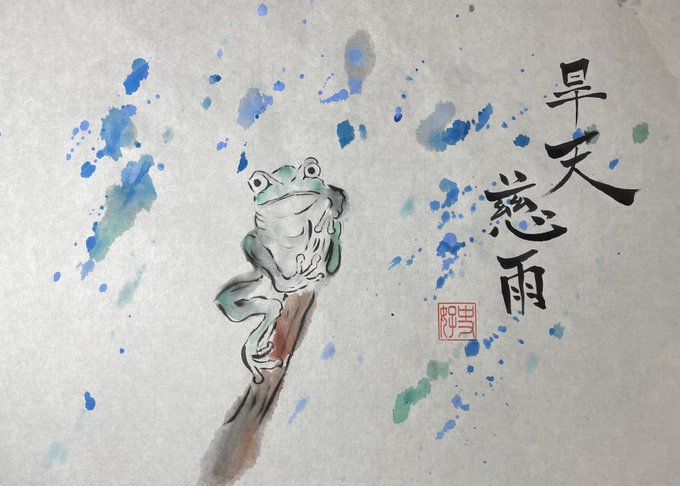 旱天慈雨